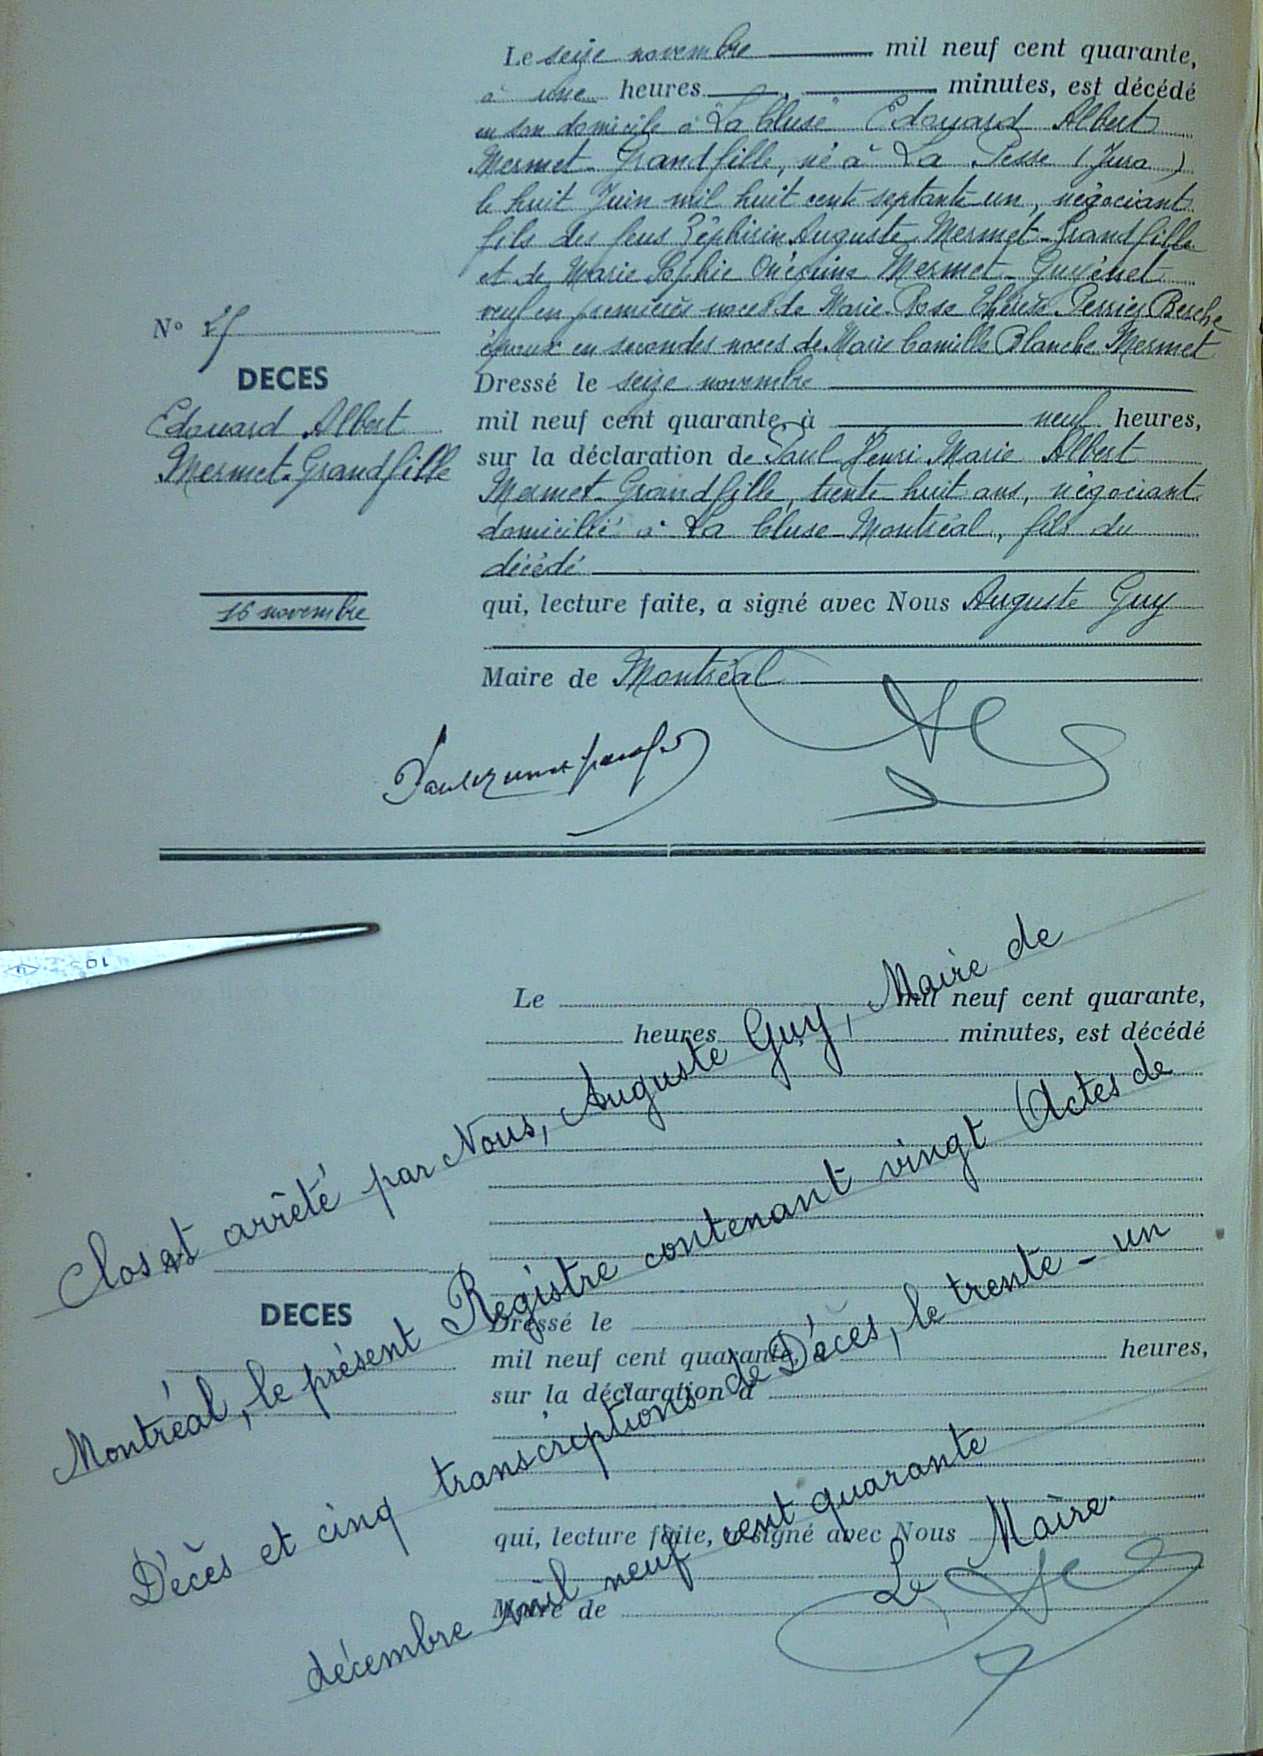 Le seize novembre mil neuf cent quarante,
à une heures , minutes, est décédé
en son domicile à "La Cluse" Edouard Albert
Mermet-Grandfille, né à La Pesse (Jura)
le huit Juin mil huit cent septante un, négociant
fils des feus Zéphirin Auguste Mermet-Grandfille
et de Marie Sophie Mermet-Guyénet
veuf en premières noces de Marie Rose Thérèse Perrier
époux en secondes noces de Marie Camille Blanche Mermet
N° 25
DECES
Edouard Albert
Mermet-Grandfille
16 novembre
Dressé le seize novembre
mil neuf cent quarante, à neuf heures,
sur la déclaration de Paul Henri Marie Albert
Mermet-Grandfille, trente huit ans, négociant
domicilié à La Cluse-Montréal, fils du
décédé
qui, lecture faite, a signé avec Nous Auguste Guy
Maire de Montréal
Le mil neuf cent quarante,
heures minutes, est décédé
DECES
Dressé le
mil neuf cent quarante, à heures,
sur la déclaration d
qui, lecture faite, a signé avec Nous
Maire de
Clos et arrêté par Nous, Auguste Guy, Maire de
Montréal, le présent Registre contenant vingt Actes de
Décès et cinq transcriptions de Décès, le trente-un
décembre mil neuf cent quarante
Le Maire
10